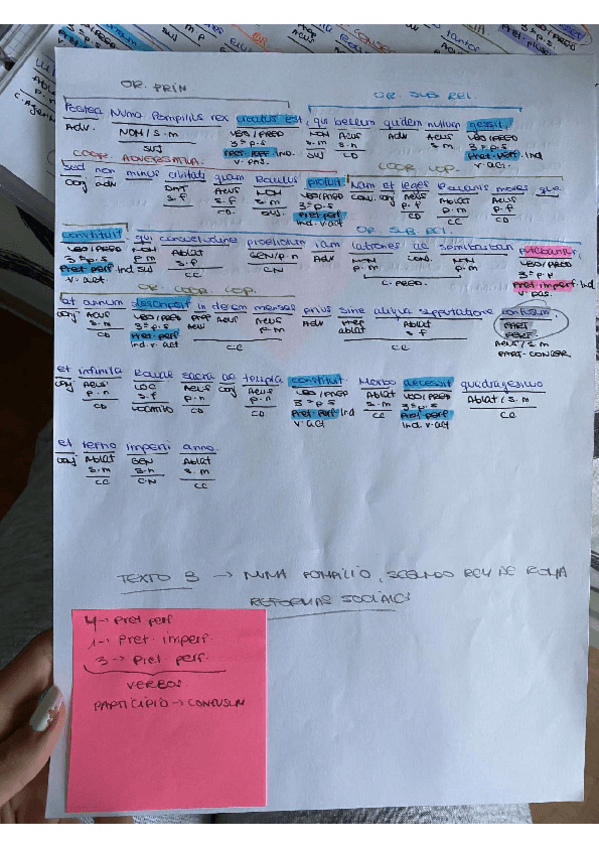 OR. PRIN
OR. SUB REL.
Postea Numa Pompilius rex creatus est, qui bellum quidem nullum gessit,
Adv. NOM/s.m VBO/PRED NOM ACUS Adv ACUS VBO/PRED
3ª p.s p.m s.n s.m 3ª p.s
SUJ Pret-perf. Ind. SUJ CD Pret-perf Ind
V. pas. v. act.
COOR. ADVERSATIVA.
COOR COP.
sed non minus civitati quam Romulus profuit. Nam et leges Romanis mores que
conj adv DAT ACUS NOM VBO/PRED conj. conj ACUS Ablat ACUS
s.f s.f s.m 3ª p.s p.f p.m p.f
CD SUJ. Pret perf CD CC CD
Ind. v. act
OR. SUB REL.
constituit, qui consuetudine proeliorum iam latrones ac semibarbari putabantur,
VBO/PRED NOM Ablat GEN/p.n Adv NOM conj. NOM VBO/PRED
3ª p.s p.m s.f p.m p.m 3ª p.p
Pret perf Ind SUJ CC CN C. PRED. Pret imperf. Ind
v. act. v. pas.
OR. COOR COP.
et annum descripsit in decem menses prius sine aliqua supputatione confusum
conj ACUS VBO/PRED PREP ACUS ACUS Adv PREP Ablat PART
s.m 3ª p.s ACU p.m ablat s.f PERF
CD Pret perf CC CC ACUS/s.m
Ind. v. act PART. CONCER
et infinita Romae sacra ac templa constituit. Morbo decessit quadragesimo
conj ACUS LOC ACUS conj ACUS VBO/PRED Ablat VBO/PRED Ablat/s.m
p.n s.f p.n p.n 3ª p.s s.m 3ª p.s
CD CD CD Pret perf Ind CC Pret perf CC
v. act Ind. v. act
et tertio imperii anno.
conj Ablat GEN Ablat
s.m s.n s.m
CC CN CC
TEXTO 3 → NUMA POMPILIO, SEGUNDO REY DE ROMA
REFORMAS SOCIALES
4 → Pret perf
1 → Pret. imperf.
3 → Pret. perf.
VERBOS
PARTICIPIO → CONFUSUM